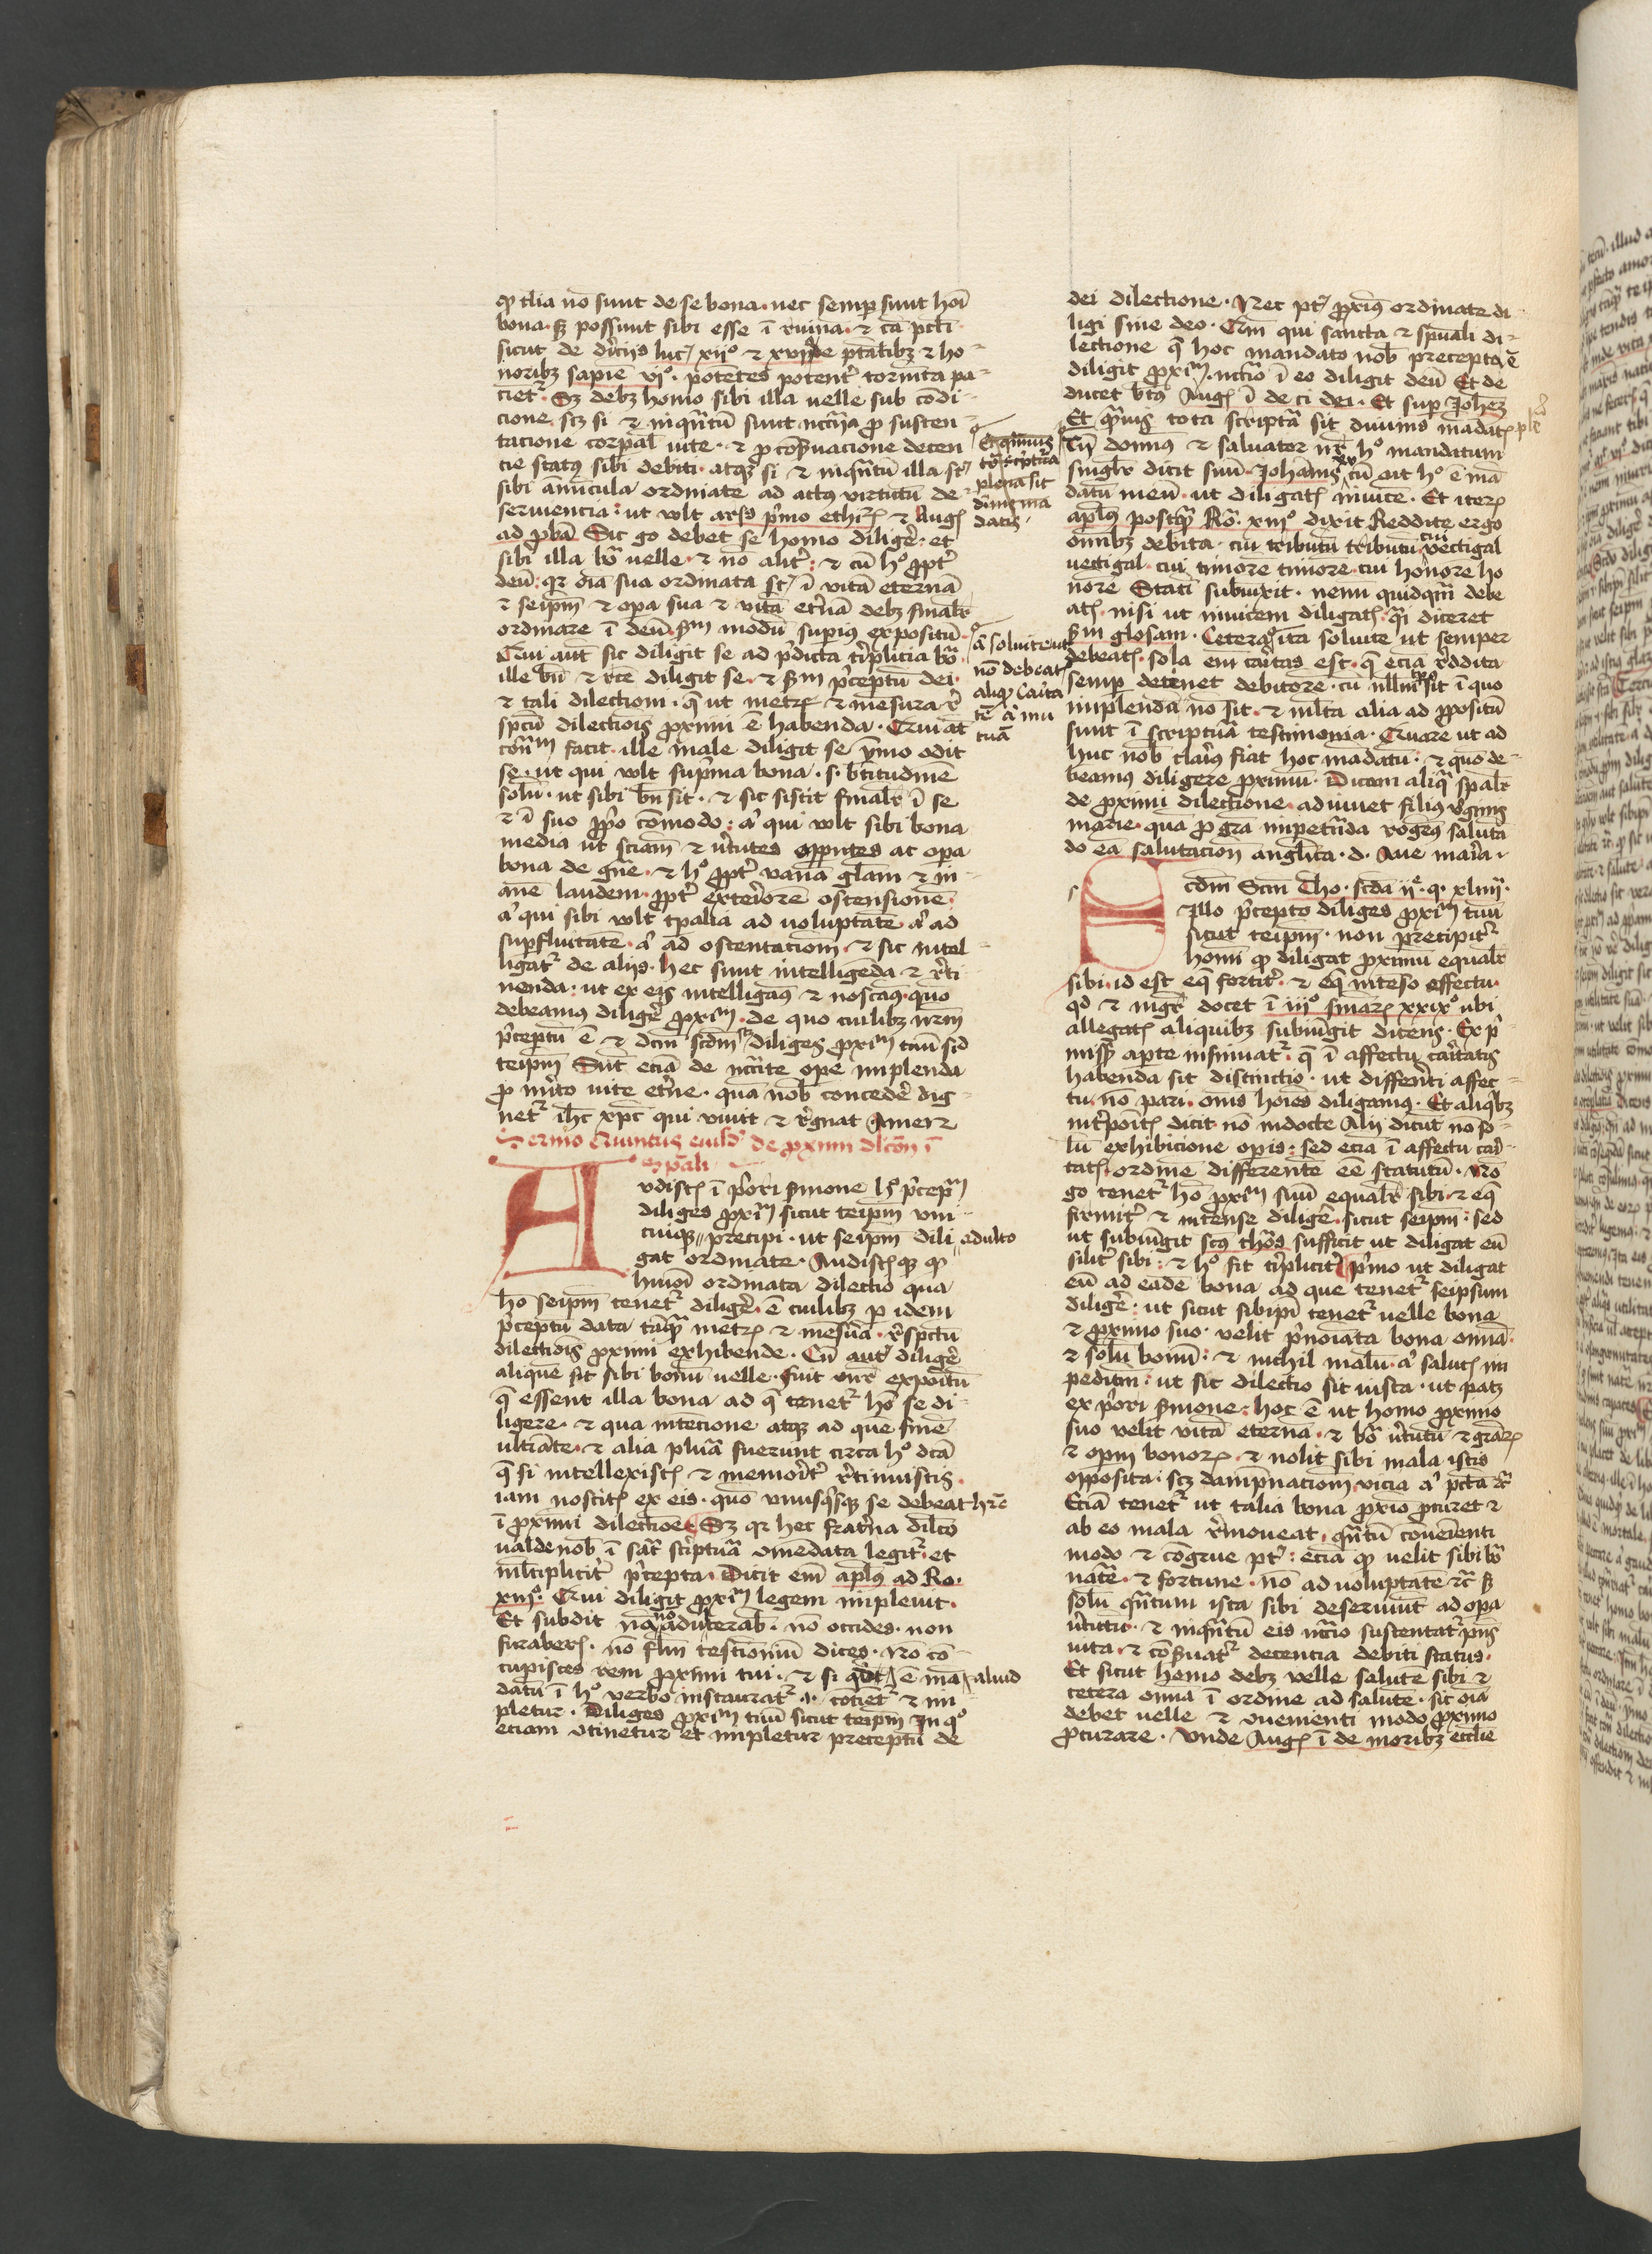 qꝫ tlia no͞ sunt de se bona · nec semp sunt hoi͞
bona · sꝫ possunt sibi esse i͞ ruina͞ · ⁊ ca͞ pct͞i
sicut de diu͛ciis luc xijº ⁊ xviij de pt͞atibꝫ ⁊ ho-
noribꝫ sapie͞ viº · pote͞tes potent͛ torm͞ta pa-
cie͞t᷑ · Sꝫ debꝫ homo sibi illa uelle sub co͞di-
cione · scꝫ si ⁊ inqn͞tu͞ sunt nccr͞ia ꝓ susten-
tacione corp͞al uite · ⁊ ꝓ co͞s͛uacione decen
cie status sibi debiti · atqꝫ si ⁊ inqn͞tu͞ illa st͞
sibi amicula ordinate ad actus virtutu͞ de-
seruiencia : ut vult ar͞s p͛mo ethicꝝ ⁊ Augꝰ
ad pba͞ Sic go debet se homo dilige͛ · et
sibi illa bo͞ uelle · ⁊ no͞ alit͛ : ⁊ cu͞ hº ꝓpt͛
deu͞ : qꝛ oi͞a sua ordinata st͞ i͞ vita͞ eterna͞
⁊ seip͞m ⁊ opa sua ⁊ vita͞ et͛na͞ debꝫ final͛r
ordinare i͞ deu͞ · sm modu͞ supiꝰ expositu͞ ·
Qui aut͞ sic diligit se ad p͛dicta t͛plicia bo͞ ·
ille bn͞ ⁊ rc͞e diligit se · ⁊ sm p͛ceptu͞ dei ·
⁊ tali dilection͞ · q̃ ut metrꝝ ⁊ mesura re͛
spcu͞ dilectiois͞ ꝓximi e͞ habenda · Qui at͞
cont͛m facit · ille male diligit se ymo odit
se · ut qui vult sup͛ma bona · s · bt͞itudine͞
solu͞ · ut sibi bn͞ sit · ⁊ sic sistit final͛r i͞ se
⁊ i͞ suo ꝓp͛o comodo : aꝰ qui vult sibi bona
media ut scia͞m ⁊ v͛tutes appntes ac opa
bona de gn͞e · ⁊ hº ꝓpt͛ vana͞ gl͞am ⁊ in-
ane͞ laudem · ꝓpt͛ exterio͛re͞ ostensione͞ ·
aꝰ qui sibi vult tpalia ad uoluptate͞ · aꝰ ad
supfluitate͞ · aꝰ ad ostentation͞ · ⁊ sic intel-
ligat᷑ de aliis · hec sunt intelligenda ⁊ re͛ti
nenda : ut ex eis intelligaꝰ ⁊ noscaꝰ · quo͞
debeamus dilige͛ ꝓxi͛m · de quo cuilibꝫ nr͞m
p͛ceptu͞ e͞ ⁊ dcm͞ scdm͞ diliges ꝓxi͛m tuu͞ sicd
teip͞m Sut͞ ecia͞ de nccr͞ite ope implenda
ꝓ mer͛ito uite et͛ne · qua͞ nob͞ concede͛ dig-
net᷑ ihc xp͞c qui viuit ⁊ re͛gnat Amen
Sermo Quintus eiusd de ꝓximi dlc͞on i͞
sꝑali
Vdistꝭ i͞ p͛ori s͛mone hº p͛cep͞m
diliges ꝓxi͛m sicut teip͞m vni
cuiqꝫ p͛recipi · ut seip͞m dili adulto
gat ordinate · Audistꝭqꝫ qꝫ
hmoi͞ ordinata dilectio qua
ho͞ seip͞m tenet᷑ dilige͛ · e͞ cuilibꝫ p idem
p͛ceptu͞ data ta͞q̃ metrꝝ ⁊ mesur͛a · re͛spectu͞
dilectiois͞ ꝓximi exhibende · Cu͞ aut͞ dilige͛
alique͞ sit sibi bonu͞ uelle · fuit vn͛r expoitu͞
q̃ essent illa bona ad q̃ tenet᷑ ho͞ se di-
ligere · ⁊ qua intencione atqꝫ ad que͞ fine͞
ulti͞ate · ⁊ alia plu͛a fuerunt circa hº dca͞
q̃ si intellexistꝭ ⁊ memorit͛ re͛tinuistis ·
iam noscitꝭ ex eis · quo͞ vnusqͥsqꝫ se debeat hr͞e
i͞ ꝓximi dilectioe͞ Sꝫ qꝛ hec frat͛na dilc͞o
ualde nob͞ i͞ sac͛ sc͛ptur͛a ꝯmendata legit᷑ · et
ml͛tiplicit͛ p͛cepta · Dicit eni͞ ap͞lus ad Ro ·
xiijº · Qui diligit ꝓxi͛m legem impleuit ·
Et subdit na͞ no͞ adulterab͞ · no͞ occides · non
furaberꝭ · no͞ flm͞ testi͞oniu͞ dices · No͞ co͞-
cupisces rem ꝓximi tui · ⁊ si qd e͞ ma͞ aliud
datu͞ i͞ hº verbo instaurat᷑ · i · co͞tiet᷑ ⁊ im
pletur · Diliges ꝓxi͛m tuu͞ sicut teip͞m In qº
eciam ꝯtinetur et impletur preceptu͞ de
Et quauis
to͞ scriptura
plena sit
diuis ma͞
datis ·
a͛ soluite ut
no͞ debeatꝭ
aliqꝫ Carita
te͞ a͛ mu
tua͞
dei dilectione · Nec pt͞ ꝓxiꝰ ordinate di
ligi sine deo · Cum qui sancta ⁊ sp͞uali di-
lectione q̃ hoc mandato nob͞ precepta e͞
diligit ꝓxi͛m · nccr͞io i͞ eo diligit deu͞ Et de
ducet bt͞us Augꝰ i͞ de ci dei · Et sup Johez
Et qm͞uis tota scriptur͛a sit diuinis madatꝭ ple͞
Tn͞ domin͞us ⁊ saluator nr͞ hº mandatum
singl͛r dicit suu͞ · Johannis xv cu͞ ait hº e͞ ma͞
datu͞ meu͞ · ut diligatꝭ inuice͞ · Et iterꝝ
ap͞lus postq̃ Ro͞ · xiijº dixit Reddite ergo
om͞ibꝫ debita · cui tributu͞ tributu͞ cui vectigal
vectigal · cui timore timore · cui honore ho
nore Stati͞ subiu͞xit · nemi͞ quidq̃m debe
atꝭ · nisi ut inuicem diligatꝭ · q̃i diceret
sm glosam · Cetera ita soluite ut semper
debeatꝭ · sola eni͞ car͛itas est · q̃ ecia͞ re͛ddita
semp detinet debitore͞ · cu͞ nllm͞ tps sit i͞ quo
implenda no͞ sit · ⁊ ml͛ta alia ad ꝓpositu͞
sunt i͞ scriptur͛a testimonia · Quare ut ad
huc nob͞ clariꝰ fiat hoc ma͞datu͞ : ⁊ quo͞ de-
beamus diligere ꝓximu͞ · Dicam aliqͣ sp͞al͛r
de ꝓximi dilectione · adiuuet filius v͛ginis
marie · qua ꝓ gra͞ impet͛nda rogem͞ · saluta
do ea͞ salutacion͞ angl͞ica · d · Aue maria ·
Ecdm͞ Scm͞ Tho · scda ijͤ · q · xliiij ·
Illo p͛cepto diliges ꝓxi͛m tuu͞
sicut teip͞m · non precipit᷑
homi͞ qꝫ diligat ꝓximu͞ equal͛r
sibi · id est eq̃ fortit͛ · ⁊ eq̃ inte͞so affectu ·
qd ⁊ mgr͞ docet i͞ iijº sin͞arꝝ xxixº ubi
allegatꝭ aliquibꝫ subiu͞git dicens · Ex p͛
missꝭ apte insinuat᷑ · q̃ i͞ affectu car͛itatis
habenda sit distinctio · ut diffent͛i affec-
tu · no͞ pari · omis͞ hoi͞es diligamus · Et aliqͥbꝫ
int͛poitꝭ dicit no͞ indocte Alij dicut͞ no͞ so-
lu͞ exhibicione opis : sed ecia͞ i͞ affectu car͛i
tatꝭ · ordine͞ differente͞ ee͞ statutu͞ · No͞
go tenet᷑ ho͞ ꝓxi͛m suu͞ equal͛r sibi · ⁊ eq̃
firmit͛ ⁊ intense dilige͛ · sicut seip͞m : sed
ut subiu͞git scus tho͞s sufficit ut diligat eu͞
silit͛ sibi : ⁊ hº fit t͛plicit͛ p͛mo ut diligat
eu͞ ad eade͞ bona ad que tenet᷑ seipsum
dilige͛ · ut sicut sibip͞i tenet᷑ uelle bona
⁊ ꝓximo suo · velit p͛noi͞ata bona omi͞a ·
⁊ solu͞ bonu͞ : ⁊ nichil malu͞ · aꝰ salutꝭ im
peditm͞ : ut sic dilectio sit iusta · ut patꝫ
ex p͛ori s͛mone : hoc e͞ ut homo ꝓximo
suo velit vita͞ eterna͞ · ⁊ bo͞ v͛tutu͞ ⁊ gra͞rꝝ
⁊ opm͞ bonorꝝ · ⁊ nolit sibi mala istis
opposita : scꝫ dampnation͞ · vicia aꝰ pct͞a ⁊c͞
Ecia͞ tenet᷑ ut talia bona ꝓxio͞ ꝓcuret ⁊
ab eo mala re͛moueat · qn͞tu͞ co͞uei͞enti
modo ⁊ co͞grue pt͞ : ecia͞ qꝫ uelit sibi bo͞
nat͛e · ⁊ fortune · no͞ ad uoluptate͞ ⁊c͞ sꝫ
solu͞ qn͞tum ista sibi deseruiu͞t ad opa
v͛tutis · ⁊ inqn͞tu͞ eis nccr͞io sustentat᷑ p͞ns
uita · ⁊ co͞s͛uat᷑ decencia debiti status ·
Et sicut homo debꝫ velle salute͞ sibi ⁊
cetera omi͞a i͞ ordine ad salute͞ · sic oi͞a
debet uelle ⁊ ꝯuenienti modo ꝓximo
ꝓcurare · Vnde Augꝰ i͞ de moribꝫ eccl͞ie